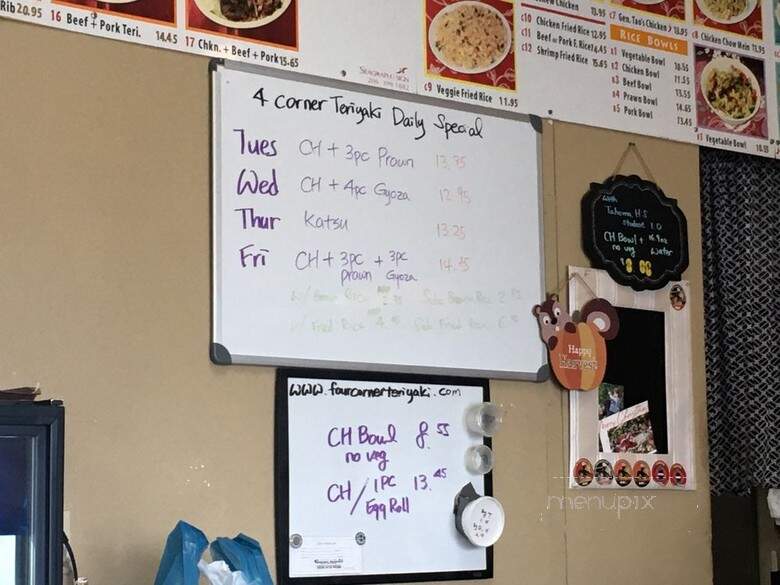 Rib 20.95 16 Beef + Pork Teri. 14.45 17 Chkn. + Beef + Pork 15.65
c9 Veggie Fried Rice 11.95
c10 Chicken Fried Rice 12.95
c11 Beef or Pork F. Rice 14.45
c12 Shrimp Fried Rice 15.65
c7 Gen. Tao's Chicken
RICE BOWLS
s1 Vegetable Bowl 10.55
s2 Chicken Bowl 11.55
s3 Beef Bowl 13.55
s4 Prawn Bowl 14.65
s5 Pork Bowl 13.45
c8 Chicken Chow Mein 13.95
s1 Vegetable Bowl 10.55
4 Corner Teriyaki Daily Special
Tues CH + 3pc Prawn 13.75
Wed CH + 4pc Gyoza 12.95
Thur Katsu 13.25
Fri CH + 3pc prawn + 3pc Gyoza 14.
w/ Brown Rice
Side Brown Rice 2.
w/ Fried Rice 4.
Side Fried Rice 6.
with
Tahoma H.S
student I.D
CH Bowl +
no veg
water
Happy
Harvest
www.fourcornerteriyaki.com
CH Bowl 8.55
no veg
CH / 1PC 13.45
Egg Roll
menupix